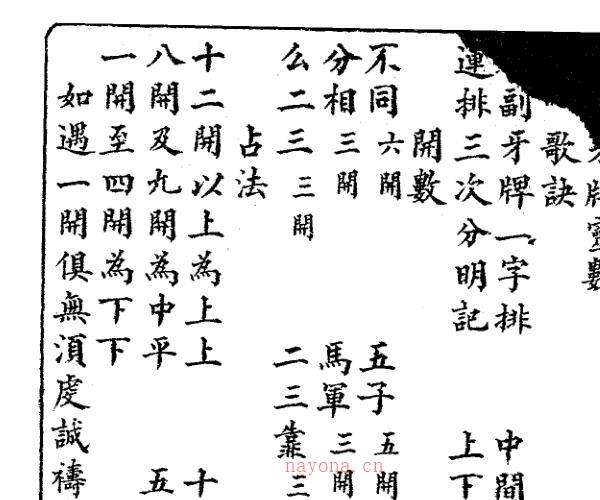 牙牌靈數
歌訣
副牙牌一字排 中間
連排三次分明記 上下
開數
不同六開 五子五開
分相三開 馬軍三開
么二三三開 二三靠三
占法
十二開以上為上上 十
八開及九開為中平 五
一開至四開為下下
如遇一開俱無須虔誠禱
nayona.cn